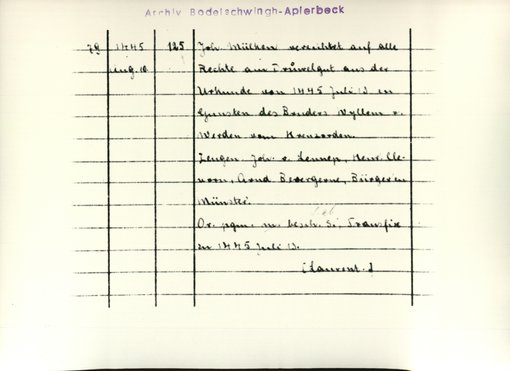 Archiv Bodelschwingh-Aplerbeck
79 1445 125 Joh. Mülken verzichtet auf alle
Aug. 10. Rechte am Drüwelgut aus der
Urkunde von 1445 Juli 13 zu
Gunsten des Bruders Wyllem v.
Werden vom Kreuzorden.
Zeugen: Joh. v. Lennep, Henr. Cle-
vorn, Arnd Bevergerne, Bürger in
Münster.
Or. pgm. m. besch. Si, Transfix
zu 1445 Juli 13.
(Laurent.)